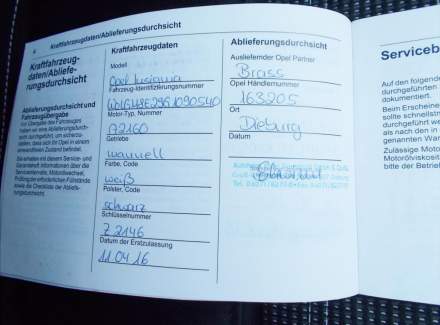 4 Kraftfahrzeugdaten/Ablieferungsdurchsicht
Kraftfahrzeug-
daten/Abliefe-
rungsdurchsicht
Ablieferungsdurchsicht und
Fahrzeugübergabe
Vor Übergabe des Fahrzeuges
haben wir eine Ablieferungsdurch-
sicht durchgeführt, um sicherzu-
stellen, dass sich Ihr Opel in einem
einwandfreien Zustand befindet.
Sie erhalten mit diesem Service- und
Garantieheft Informationen über die
Serviceintervalle, Motorölwechsel,
Prüfung der erforderlichen Füllstände
sowie die Checkliste der Abliefe-
rungsdurchsicht.
Kraftfahrzeugdaten
Modell
Opel Insignia
Fahrzeug-Identifizierungsnummer
Motor-Typ, Nummer
A2160
Getriebe
manuell
Farbe, Code
weiß
Polster, Code
schwarz
Schlüsselnummer
Z 2146
Datum der Erstzulassung
11.04.16
Ablieferungsdurchsicht
Ausliefernder Opel Partner
Brass
Opel Händlernummer
163205
Ort
Dieburg
Datum
Serviceb
Auf den folgende
durchgeführten
dokumentiert.
Bei Erscheine
sollte schnellstm
durchgeführt we
als nach den in
genannten War
Zulässige Motor
Motorölviskosit
bitte der Betrieb